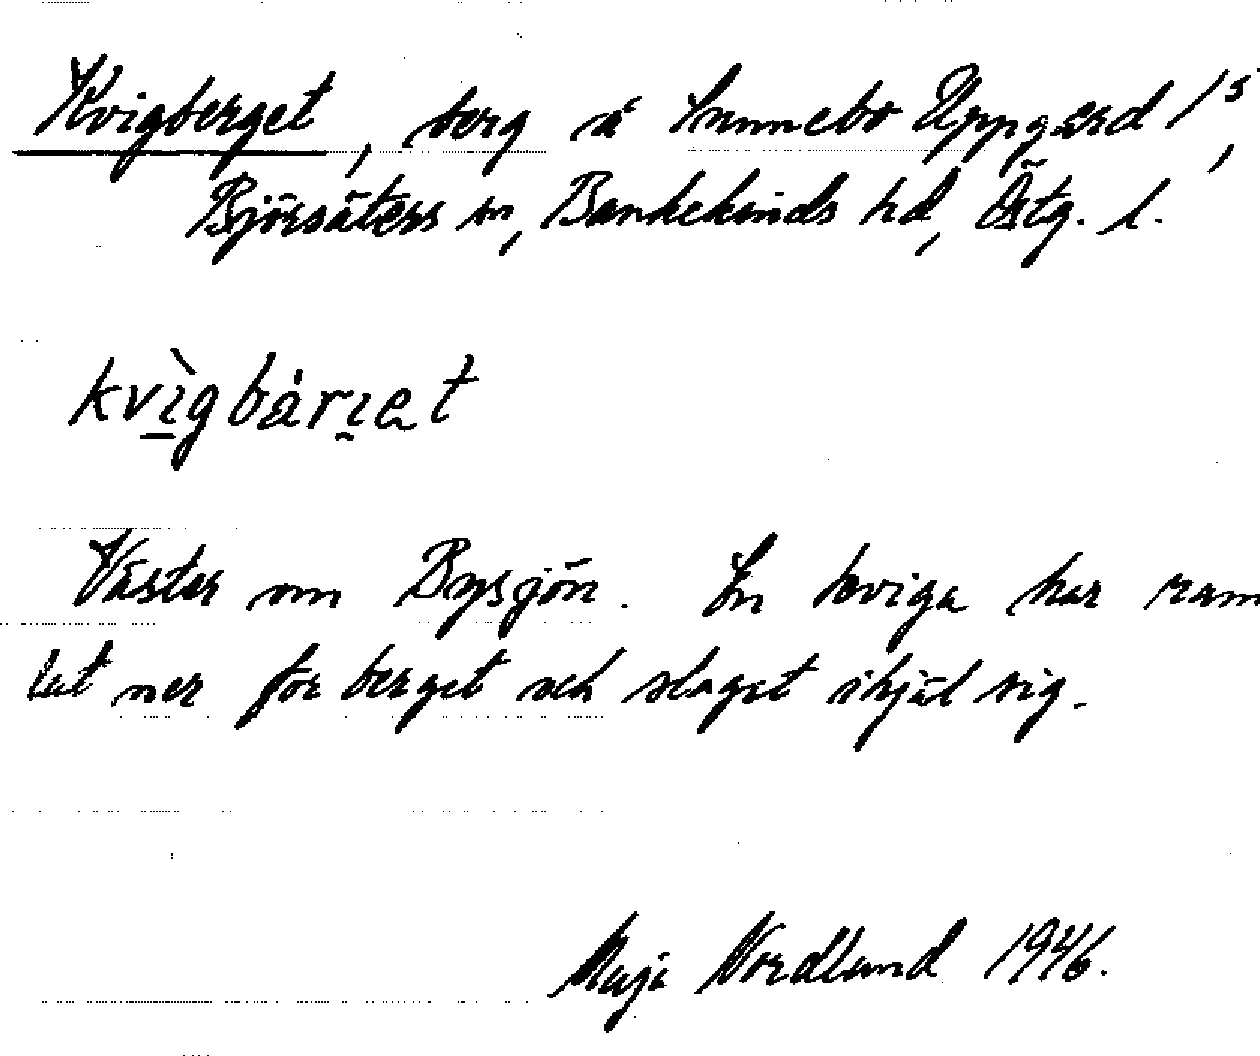 Kvigberget, berg å Sunnebo Uppgård 1³,
Björsäters sn, Bankekinds hd, Östg. l.
kvìgbárɪet
Väster om Bysjön. En kviga har ram
lat ner för berget och slaget ihjäl sig.
Maja Nordlund 1946.